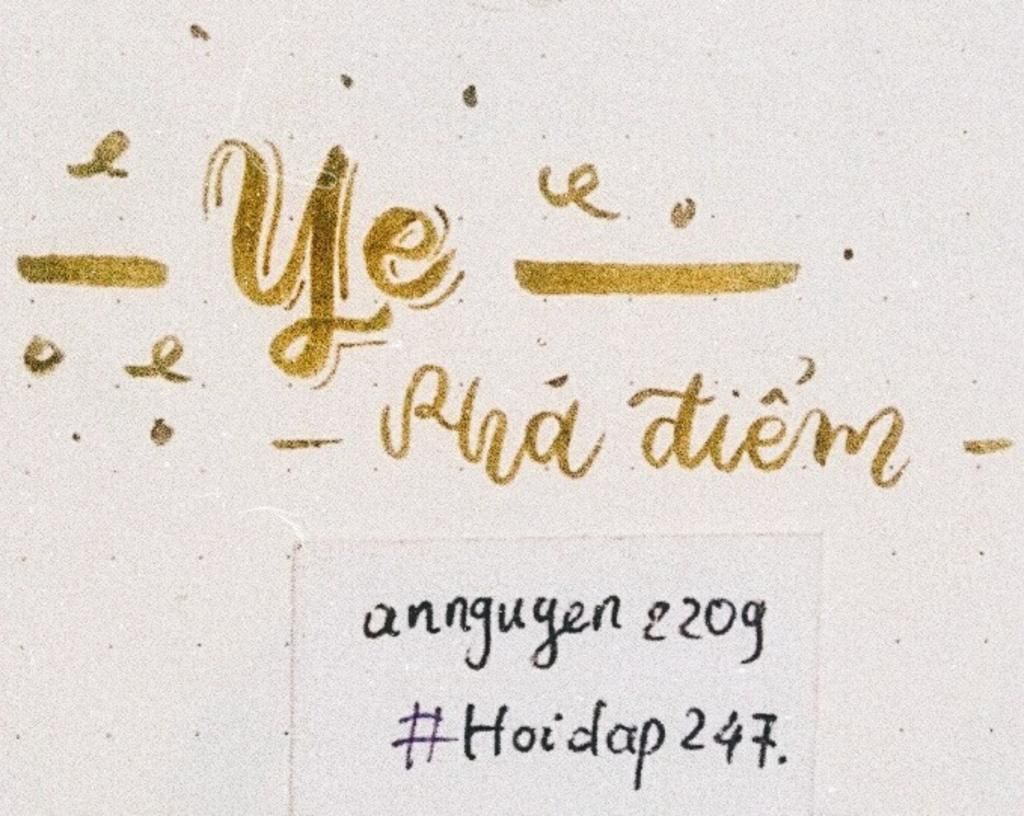 Ye
- Phá điểm -
annguyen 2209
#Hoidap 247.